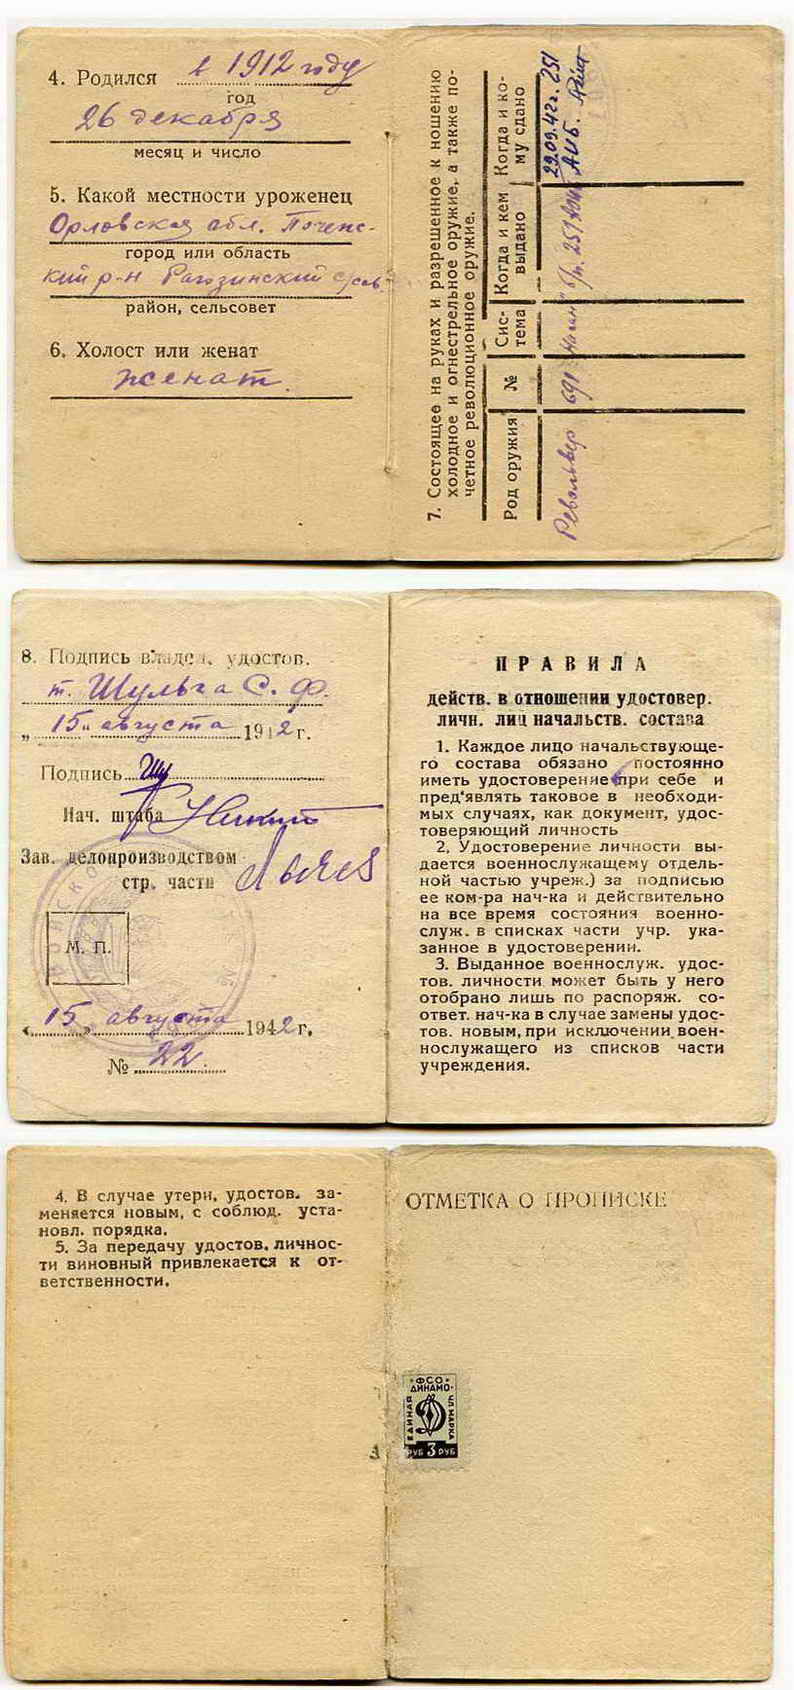 4. Родился в 1912 году
год
26 декабря
месяц и число
5. Какой местности уроженец
Орловская обл. Почепс-
город или область
кий р-н Рагозинский с/сов.
район, сельсовет
6. Холост или женат
женат.
7. Состоящее на руках и разрешенное к ношению
холодное и огнестрельное оружие, а также по-
четное революционное оружие.
Род оружия
№
Сис-
тема
Когда и кем
выдано
Когда и ко-
му сдано
Револьвер
691
Наган
29.09.42г. 251
АИБ.
8. Подпись владел. удостов.
т. Шульга С. Ф.
„ 15 „ августа 1942 г.
Подпись Шу
Нач. штаба
Зав. делопроизводством
стр. части
М. П.
« 15 » августа 1942 г.
№ 22.
ПРАВИЛА
действ. в отношении удостовер.
личн. лиц начальств. состава
1. Каждое лицо начальствующе-
го состава обязано постоянно
иметь удостоверение при себе и
пред'являть таковое в необходи-
мых случаях, как документ, удос-
товеряющий личность
2, Удостоверение личности вы-
дается военнослужащему отдель-
ной частью учреж.) за подписью
ее ком-ра нач-ка и действительно
на все время состояния военно-
служ. в списках части учр. ука-
занное в удостоверении.
3. Выданное военнослуж. удос-
тов. личности может быть у него
отобрано лишь по распоряж. со-
ответ. нач-ка в случае замены удос-
тов. новым, при исключении воен-
нослужащего из списков части
учреждения.
4. В случае утери, удостов. за-
меняется новым, с соблюд. уста-
новл. порядка.
5. За передачу удостов. личнос-
ти виновный привлекается к от-
ветственности.
ОТМЕТКА О ПРОПИСКЕ
ФСО
ДИНАМО
ЕДИНАЯ
ЧЛ. МАРКА
РУБ 3 РУБ